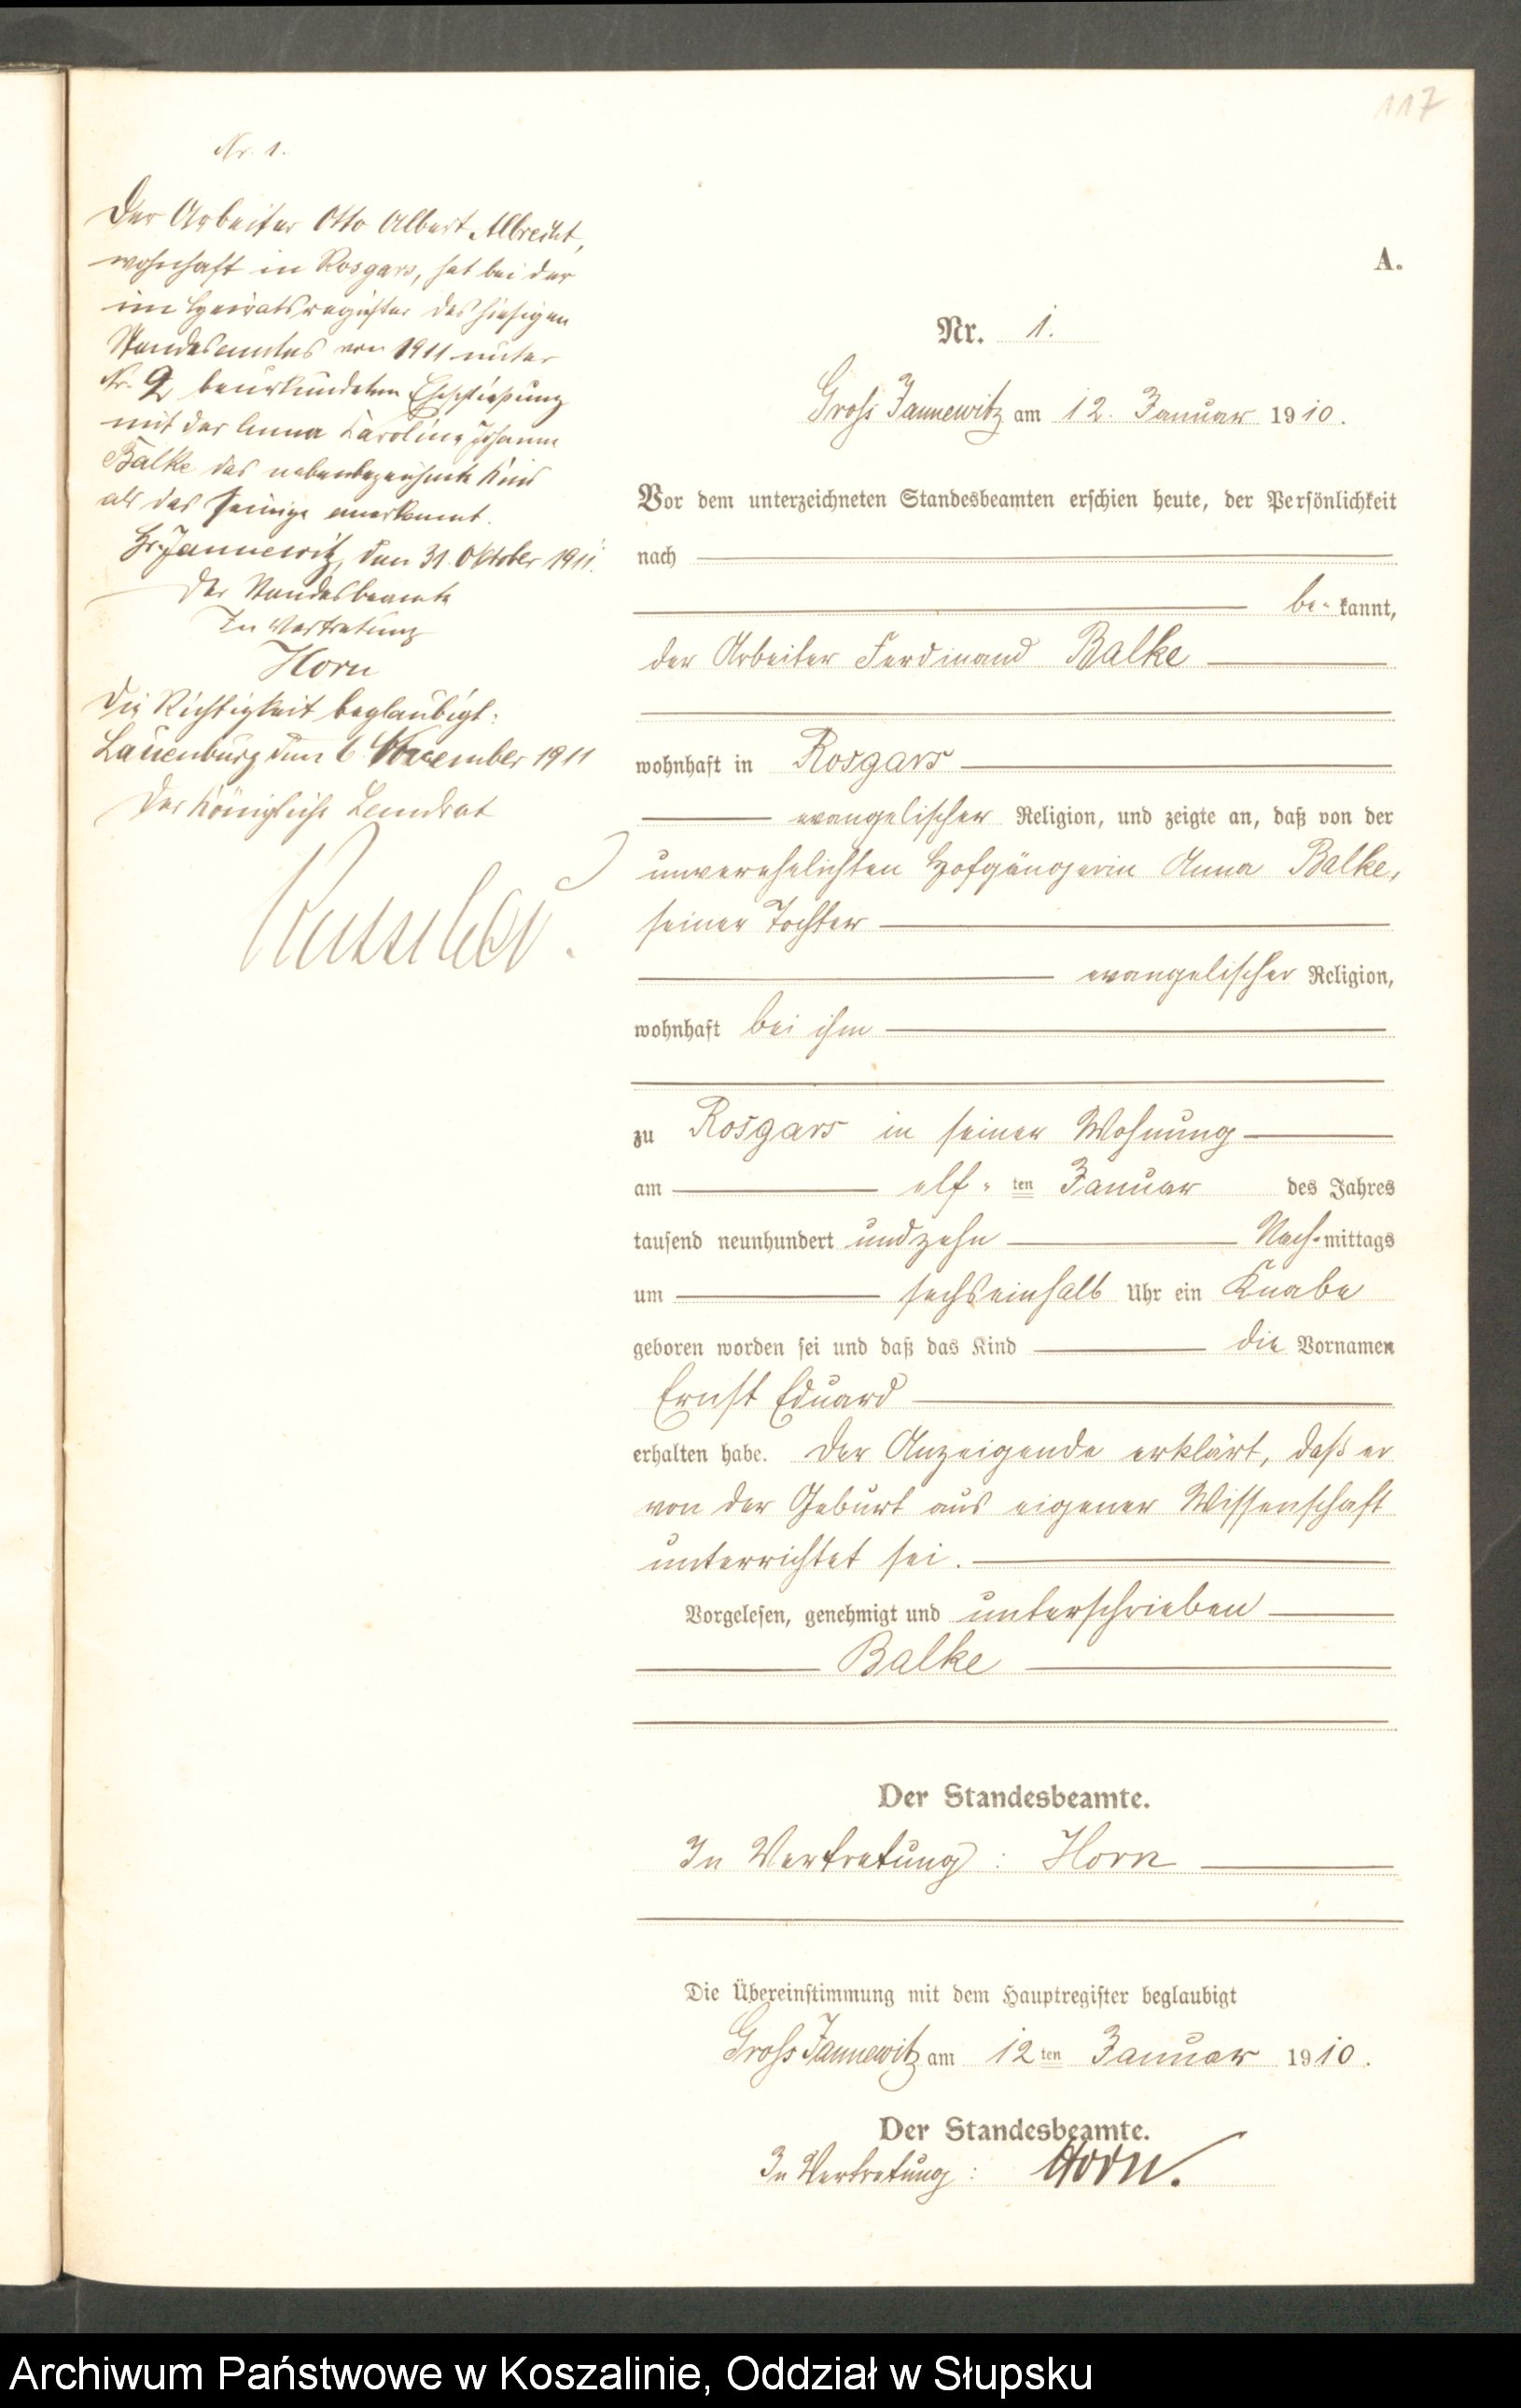 117
Nr. 1.
Der Arbeiter Otto Albert Albrecht,
wohnhaft in Rosgars, hat bei der
im Heiratsregister des hiesigen
Standesamtes von 1911 unter
Nr. 9 beurkundeten Eheschließung
mit der Anna Karoline Johanna
Balke das nebenbezeichnete Kind
als das seinige anerkannt.
Gr. Jannewitz, den 31. Oktober 1911.
Der Standesbeamte
In Vertretung
Horn
Die Richtigkeit beglaubigt:
Lauenburg den 6. November 1911
Der Königliche Landrat
A.
Nr. 1.
Gross Jannewitz am 12. Januar 1910.
Vor dem unterzeichneten Standesbeamten erschien heute, der Persönlichkeit
nach
be- kannt,
der Arbeiter Ferdinand Balke
wohnhaft in Rosgars
evangelischer Religion, und zeigte an, daß von der
unverehelichten Hofgängerin Anna Balke,
seiner Tochter
evangelischer Religion,
wohnhaft bei ihm
zu Rosgars in seiner Wohnung
am elf- ten Januar des Jahres
tausend neunhundert undzehn Nach-mittags
um sechseinhalb Uhr ein Knabe
geboren worden sei und daß das Kind die Vornamen
Ernst Eduard
erhalten habe. Der Anzeigende erklärt, daß er
von der Geburt aus eigener Wissenschaft
unterrichtet sei.
Vorgelesen, genehmigt und unterschrieben
Balke
Der Standesbeamte.
In Vertretung: Horn
Die Übereinstimmung mit dem Hauptregister beglaubigt
Gross Jannewitz am 12ten Januar 1910.
Der Standesbeamte.
In Vertretung: Horn.
Archiwum Państwowe w Koszalinie, Oddział w Słupsku